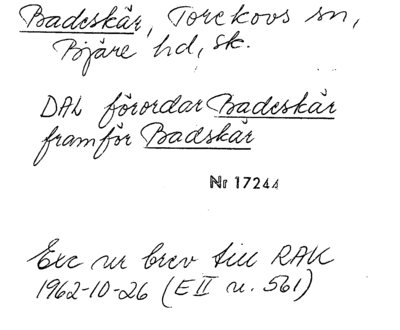 Badeskär, Torekovs sn,
Bjäre hd, Sk.
DAL förordar Badeskär
framför Badskär
Nr 17244
Exc ur brev till RAK
1962-10-26 (E II u. 561)